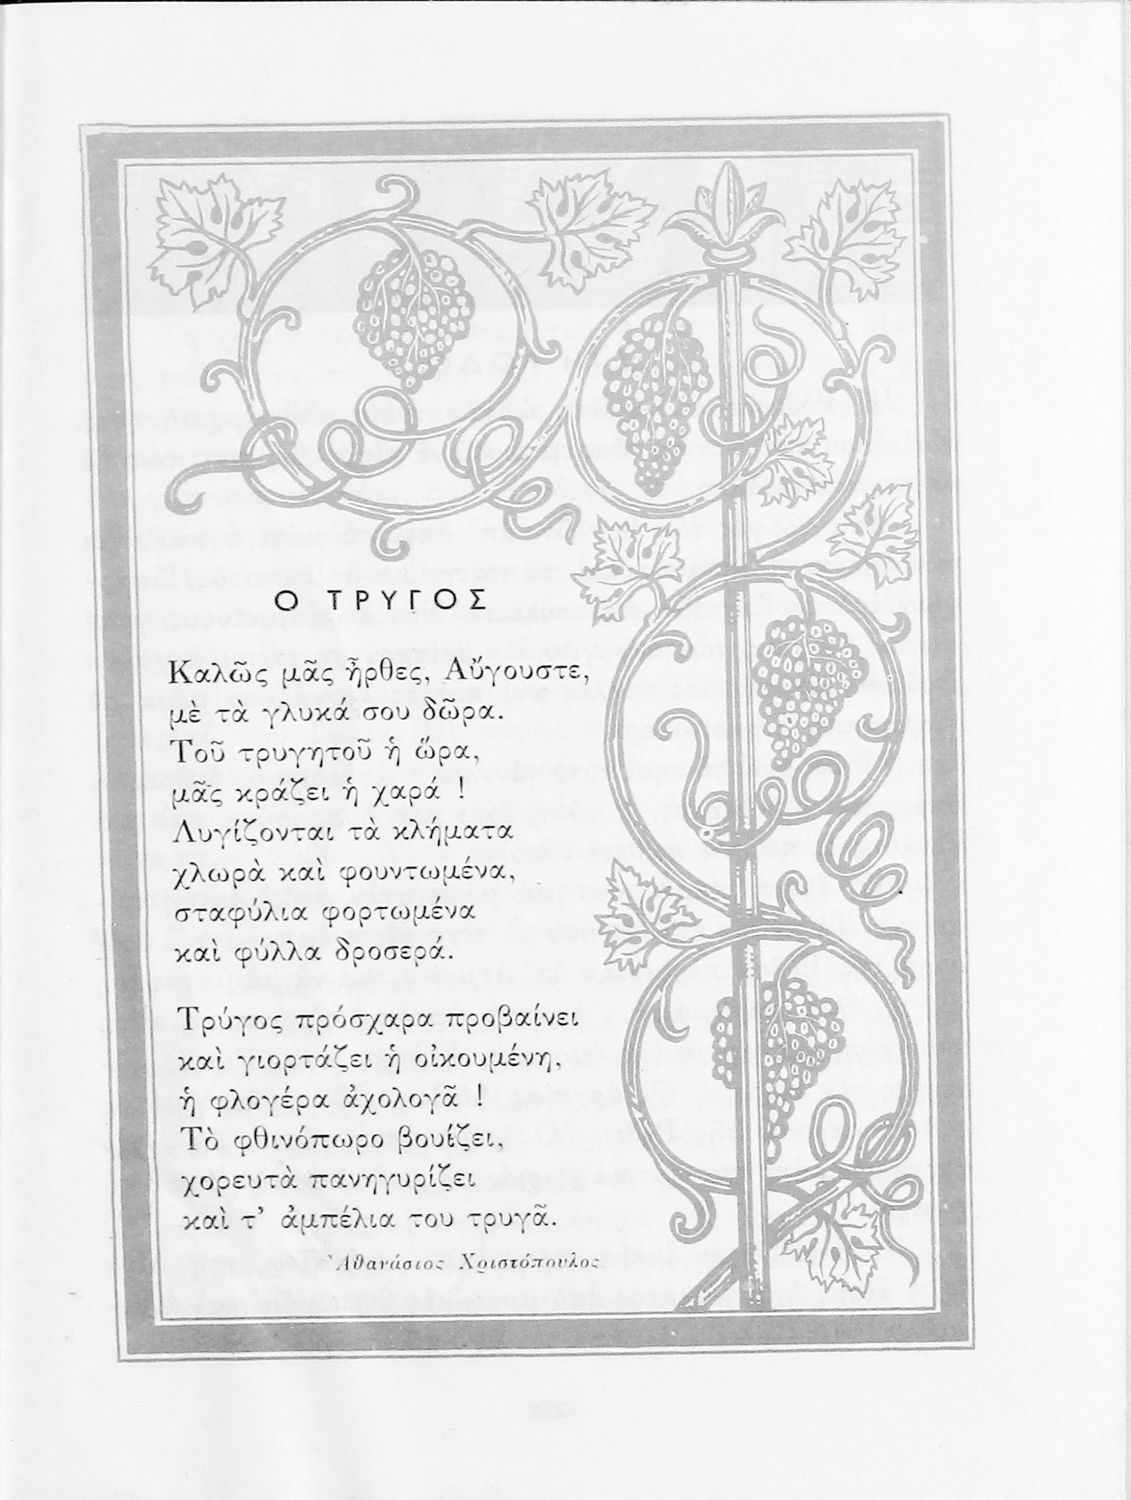 Ο ΤΡΥΓΟΣ
Καλῶς μᾶς ἦρθες, Αὔγουστε,
μὲ τὰ γλυκά σου δῶρα.
Τοῦ τρυγητοῦ ἡ ὥρα,
μᾶς κράζει ἡ χαρά !
Λυγίζονται τὰ κλήματα
χλωρὰ καὶ φουντωμένα,
σταφύλια φορτωμένα
καὶ φύλλα δροσερά.
Τρύγος πρόσχαρα προβαίνει
καὶ γιορτάζει ἡ οἰκουμένη,
ἡ φλογέρα ἀχολογᾶ !
Τὸ φθινόπωρο βουίζει,
χορευτὰ πανηγυρίζει
καὶ τ’ ἀμπέλια του τρυγᾶ.
Ἀθανάσιος Χριστόπουλος